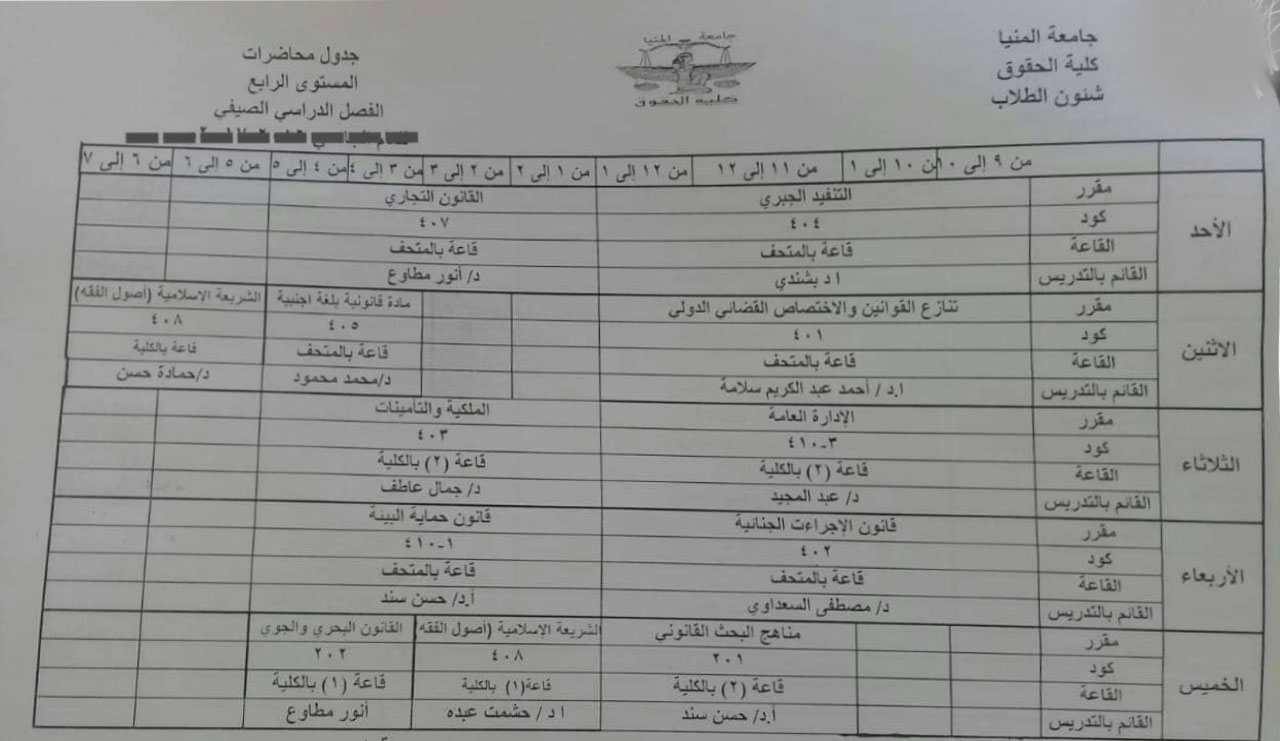 جامعة المنيا
كلية الحقوق
شئون الطلاب
جامعة المنيا
كلية الحقوق
جدول محاضرات
المستوى الرابع
الفصل الدراسي الصيفي
من ٩ إلى ١٠ من ١٠ إلى ١ من ١١ إلى ١٢ من ١٢ إلى ١ من ١ إلى ٢ من ٢ إلى ٣ من ٣ إلى ٤ من ٤ إلى ٥ من ٥ إلى ٦ من ٦ إلى ٧
الأحد
مقرر التنفيد الجبري القانون التجاري
كود ٤٠٤ ٤٠٧
القاعة قاعة بالمتحف قاعة بالمتحف
القائم بالتدريس ا د بشندي د/ أنور مطاوع
الاثنين
مقرر تنازع القوانين والاختصاص القضائي الدولي مادة قانونية بلغة اجنبية الشريعة الاسلامية (أصول الفقه)
كود ٤٠١ ٤٠٥ ٤٠٨
القاعة قاعة بالمتحف قاعة بالمتحف قاعة بالكلية
القائم بالتدريس ا.د / أحمد عبد الكريم سلامة د/محمد محمود د/حمادة حسن
الثلاثاء
مقرر الإدارة العامة الملكية والتأمينات
كود ٣-٤١٠ ٤٠٣
القاعة قاعة (٢) بالكلية قاعة (٢) بالكلية
القائم بالتدريس د/ عبد المجيد د/ جمال عاطف
الأربعاء
مقرر قانون الإجراءت الجنائية قانون حماية البيئة
كود ٤٠٢ ١-٤١٠
القاعة قاعة بالمتحف قاعة بالمتحف
القائم بالتدريس د/ مصطفى السعداوي أ.د/ حسن سند
الخميس
مقرر مناهج البحث القانوني الشريعة الإسلامية (أصول الفقه القانون البحري والجوي
كود ٢٠١ ٤٠٨ ٢٠٢
القاعة قاعة (٢) بالكلية قاعة(١) بالكلية قاعة (١) بالكلية
القائم بالتدريس أ.د/ حسن سند ا د / حشمت عبده أنور مطاوع